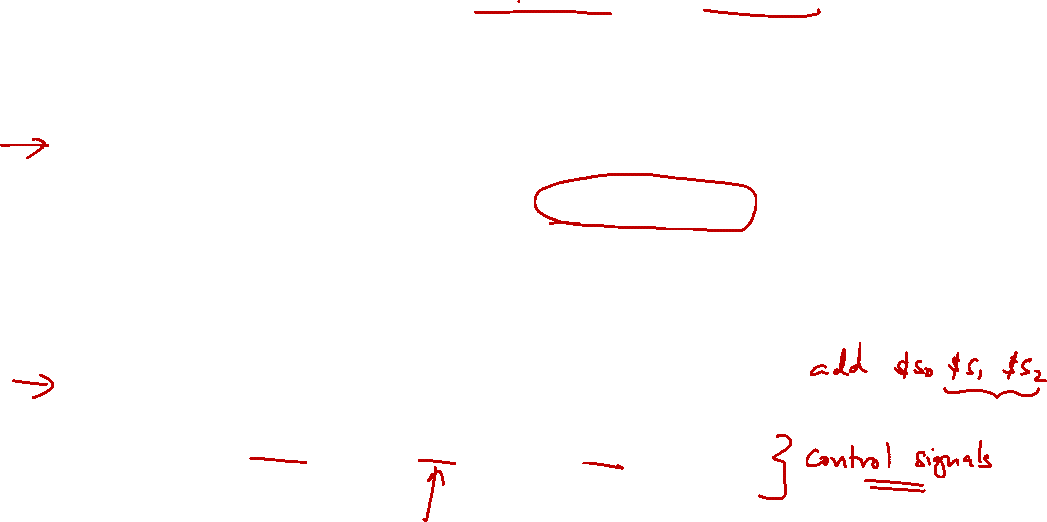 add $s0 $s1 $s2
} control signals